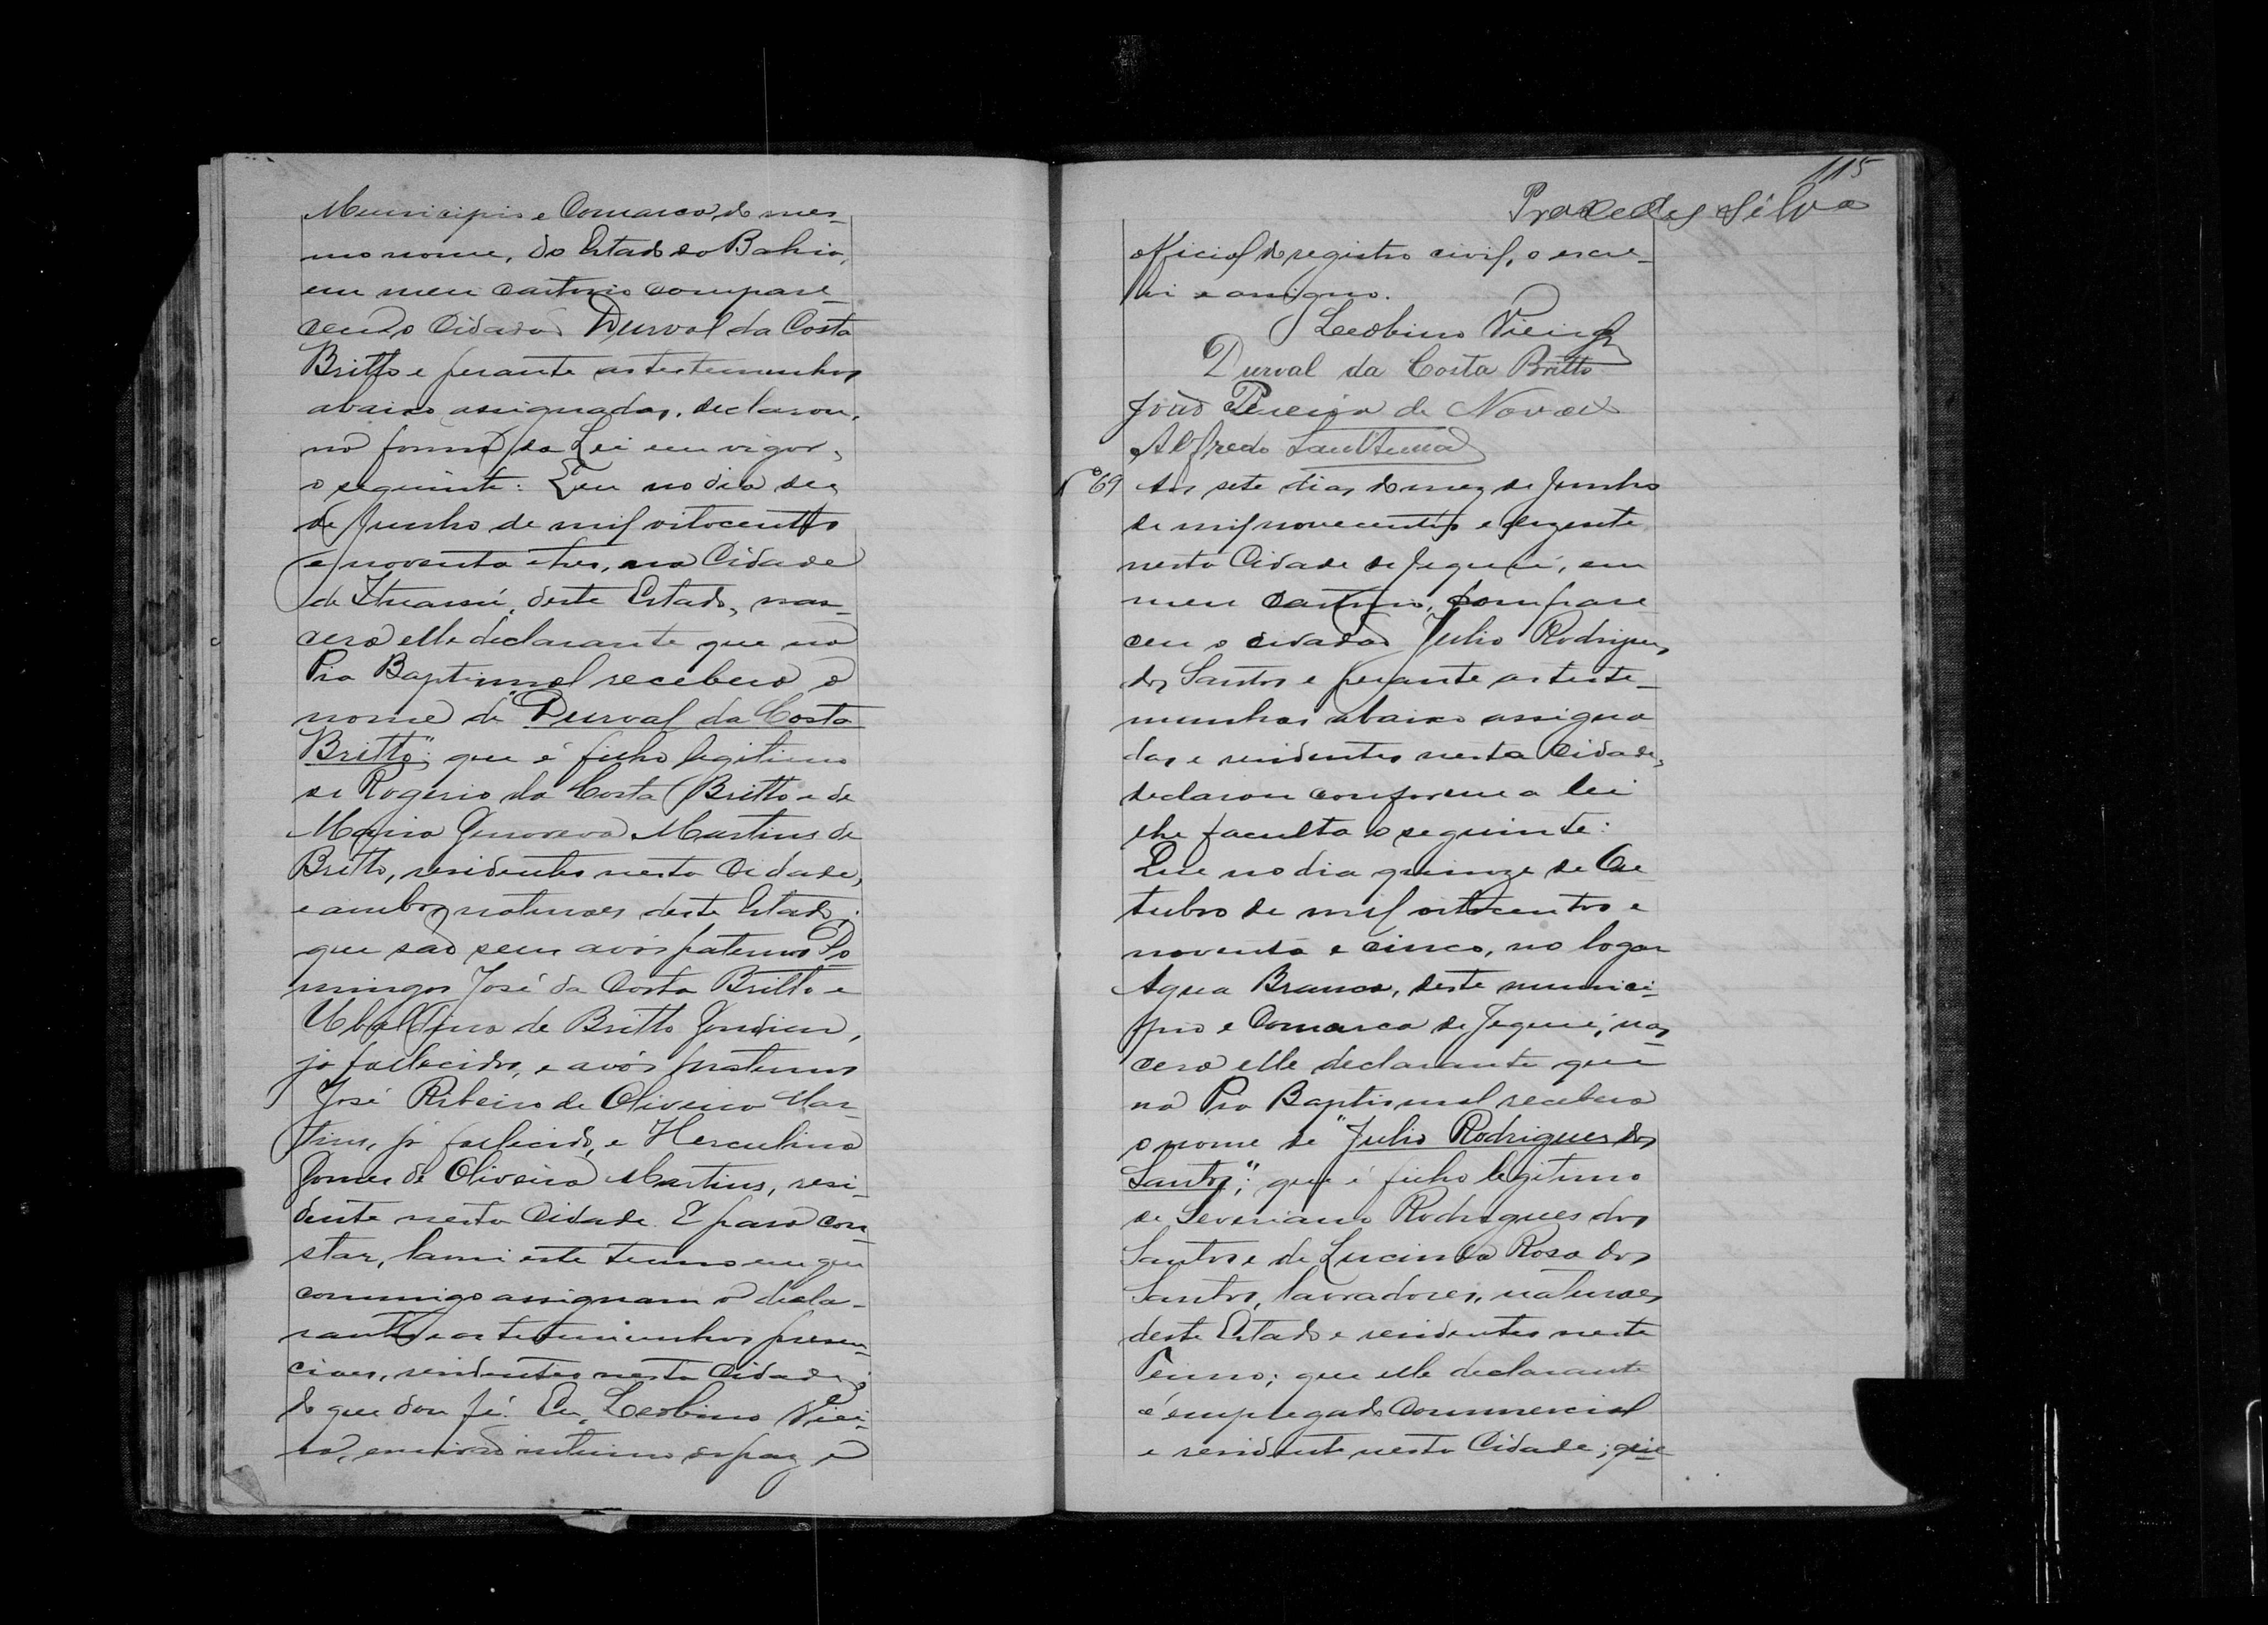 Municipio e Comarca do mes-
mo nome, do Estado da Bahia,
em meu cartorio compare-
ceu o Cidadão Durval da Costa
Britto e perante as testemunhas
abaixo assignadas, declarou,
na forma da Lei em vigor,
o seguinte: Que no dia dez
de Junho de mil oitocentos
e noventa e tres, na Cidade
de Ituassú, deste Estado, nas-
cera elle declarante que na
Pia Baptismal recebera o
nome de "Durval da Costa
Britto"; que é filho legitimo
de Rogerio da Costa Britto e de
Maria Genoveva Martins de
Britto, residentes nesta Cidade,
e ambos naturaes deste Estado;
que são seus avós paternos Do
mingos José da Costa Britto e
Ubaldina de Britto Gondim,
já fallecidos, e avós maternos
José Ribeiro de Oliveira Mar-
tins, já fallecido, e Herculina
Gomes de Oliveira Martins, resi-
dente nesta Cidade. E para con-
star, lavrei este termo em que
commigo assignam o decla-
rante e as testemunhas presen-
ciaes, residentes nesta Cidade;
do que dou fé. Eu, Leobino Viei-
ra, escrivão interino de paz e
115
Proxedes Silva
official do registro civil, o escre-
vi e assigno.
Leobino Vieira
Durval da Costa Britto
João Pereira de Novaes
Alfredo Sant'Anna
Nº 69 Aos sete dias do mez de Junho
de mil novecentos e dezesete
nesta Cidade de Jequié, em
meu cartorio, compare
ceu o cidadão Julio Rodrigues
dos Santos e perante as teste-
munhas abaixo assigna
das e residentes nesta Cidade,
declarou conforme a lei
lhe faculta o seguinte:
Que no dia quinze de Ou
tubro de mil oitocentos e
noventa e cinco, no logar
Agua Branca, deste munici-
pio e Comarca de Jequié, nas
cera elle declarante que
na Pia Baptismal recebera
o nome de "Julio Rodrigues dos
Santos"; que é filho legitimo
de Severiano Rodrigues dos
Santos e de Lucinda Rosa dos
Santos, lavradores, naturaes
deste Estado e residentes neste
Termo; que elle declarante
é empregado Commercial
e residente nesta Cidade; que